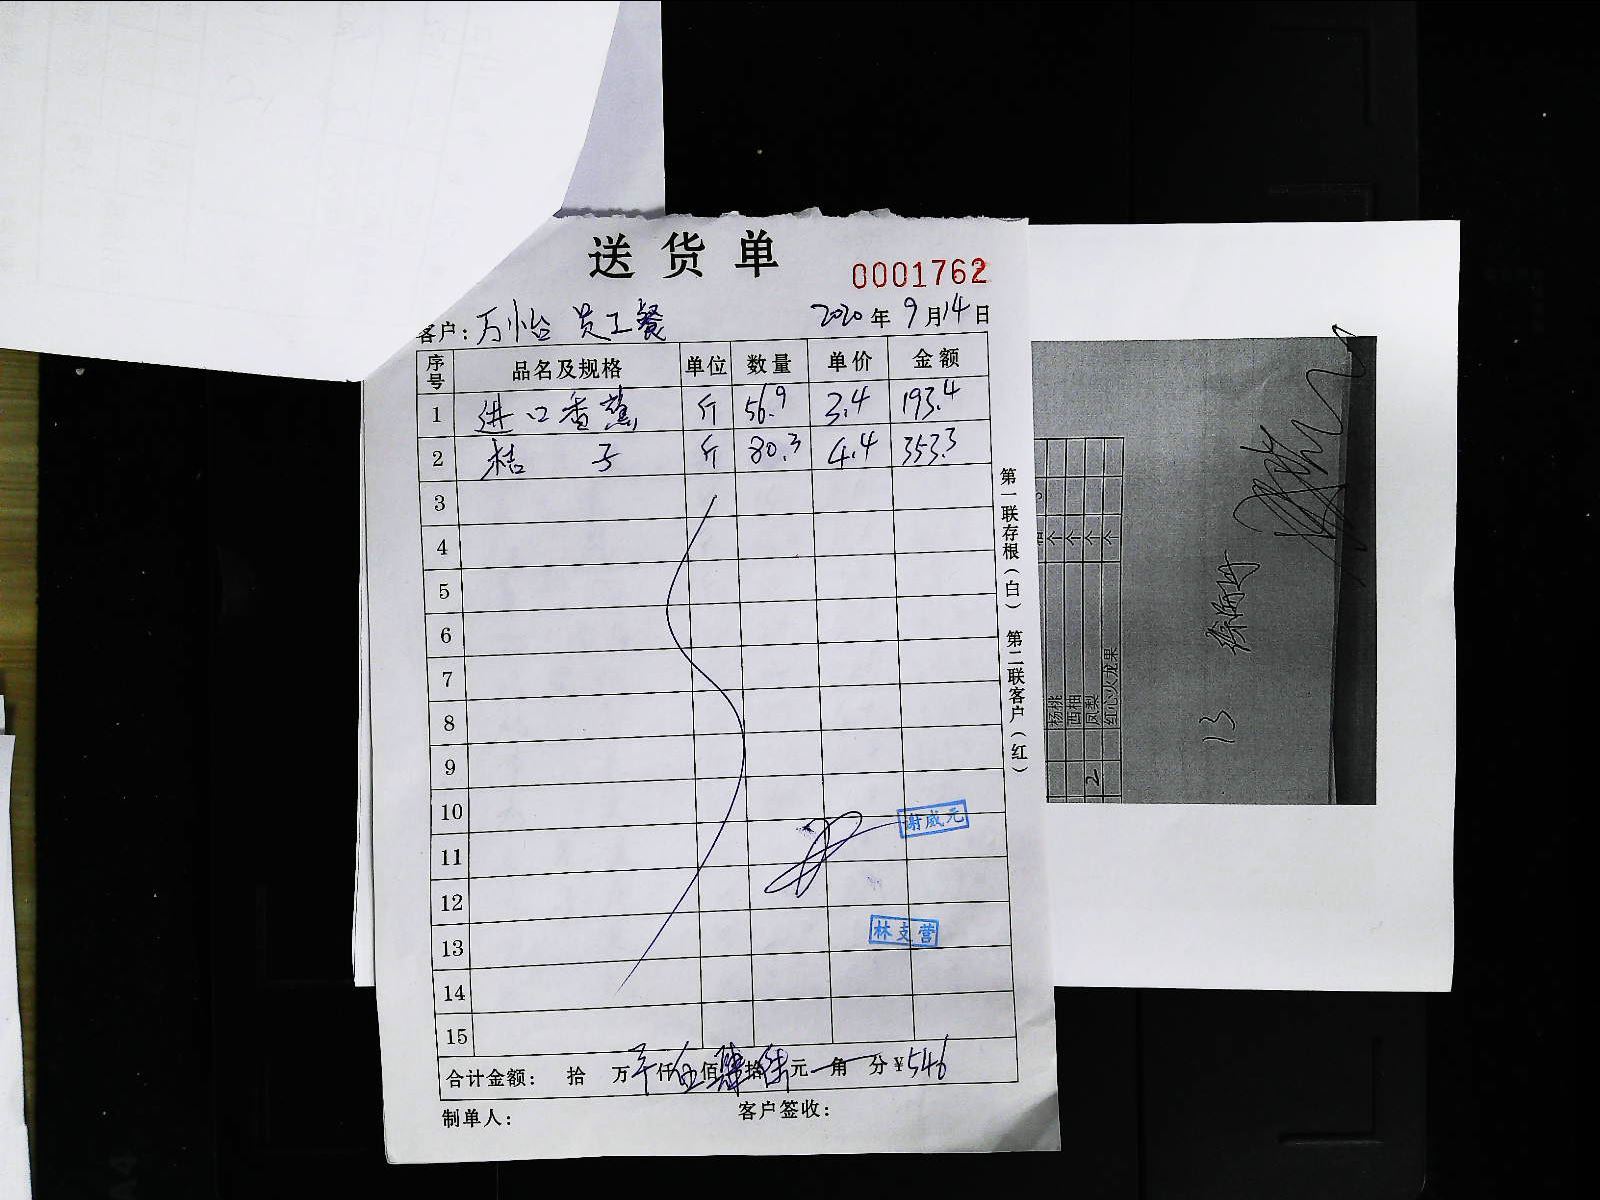 送货单
0001762
客户: 万怡 员工餐 2020年9月14日
序号 品名及规格 单位 数量 单价 金额
1 进口香蕉 斤 56.9 3.4 193.4
2 桔子 斤 80.3 4.4 353.3
3
4
5
6
7
8
9
10
谢威元
11
12
13
林支营
14
15
合计金额: 拾 万 仟伍佰肆拾陆元 角 分 ¥546
制单人: 客户签收:
第一联存根(白) 第二联客户(红)
杨桃
西柚 个
2 凤梨 个
红心火龙果 个
13